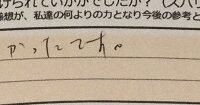 けられていかがでしたか？（スバリ
感想が、私達の何よりの力となり今後の参考と
かったです。